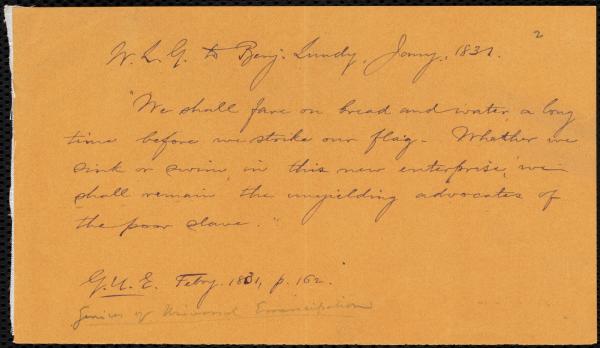 2
W. L. G. to Benj. Lundy, Jany., 1831.
"We shall fare on bread and water a long
time before we strike our flag. Whether we
sink or swim, in this new enterprise, we
shall remain the unyielding advocates of
the poor slave."
G. U. E. Feby. 1831, p. 162.
Genius of Universal Emancipation